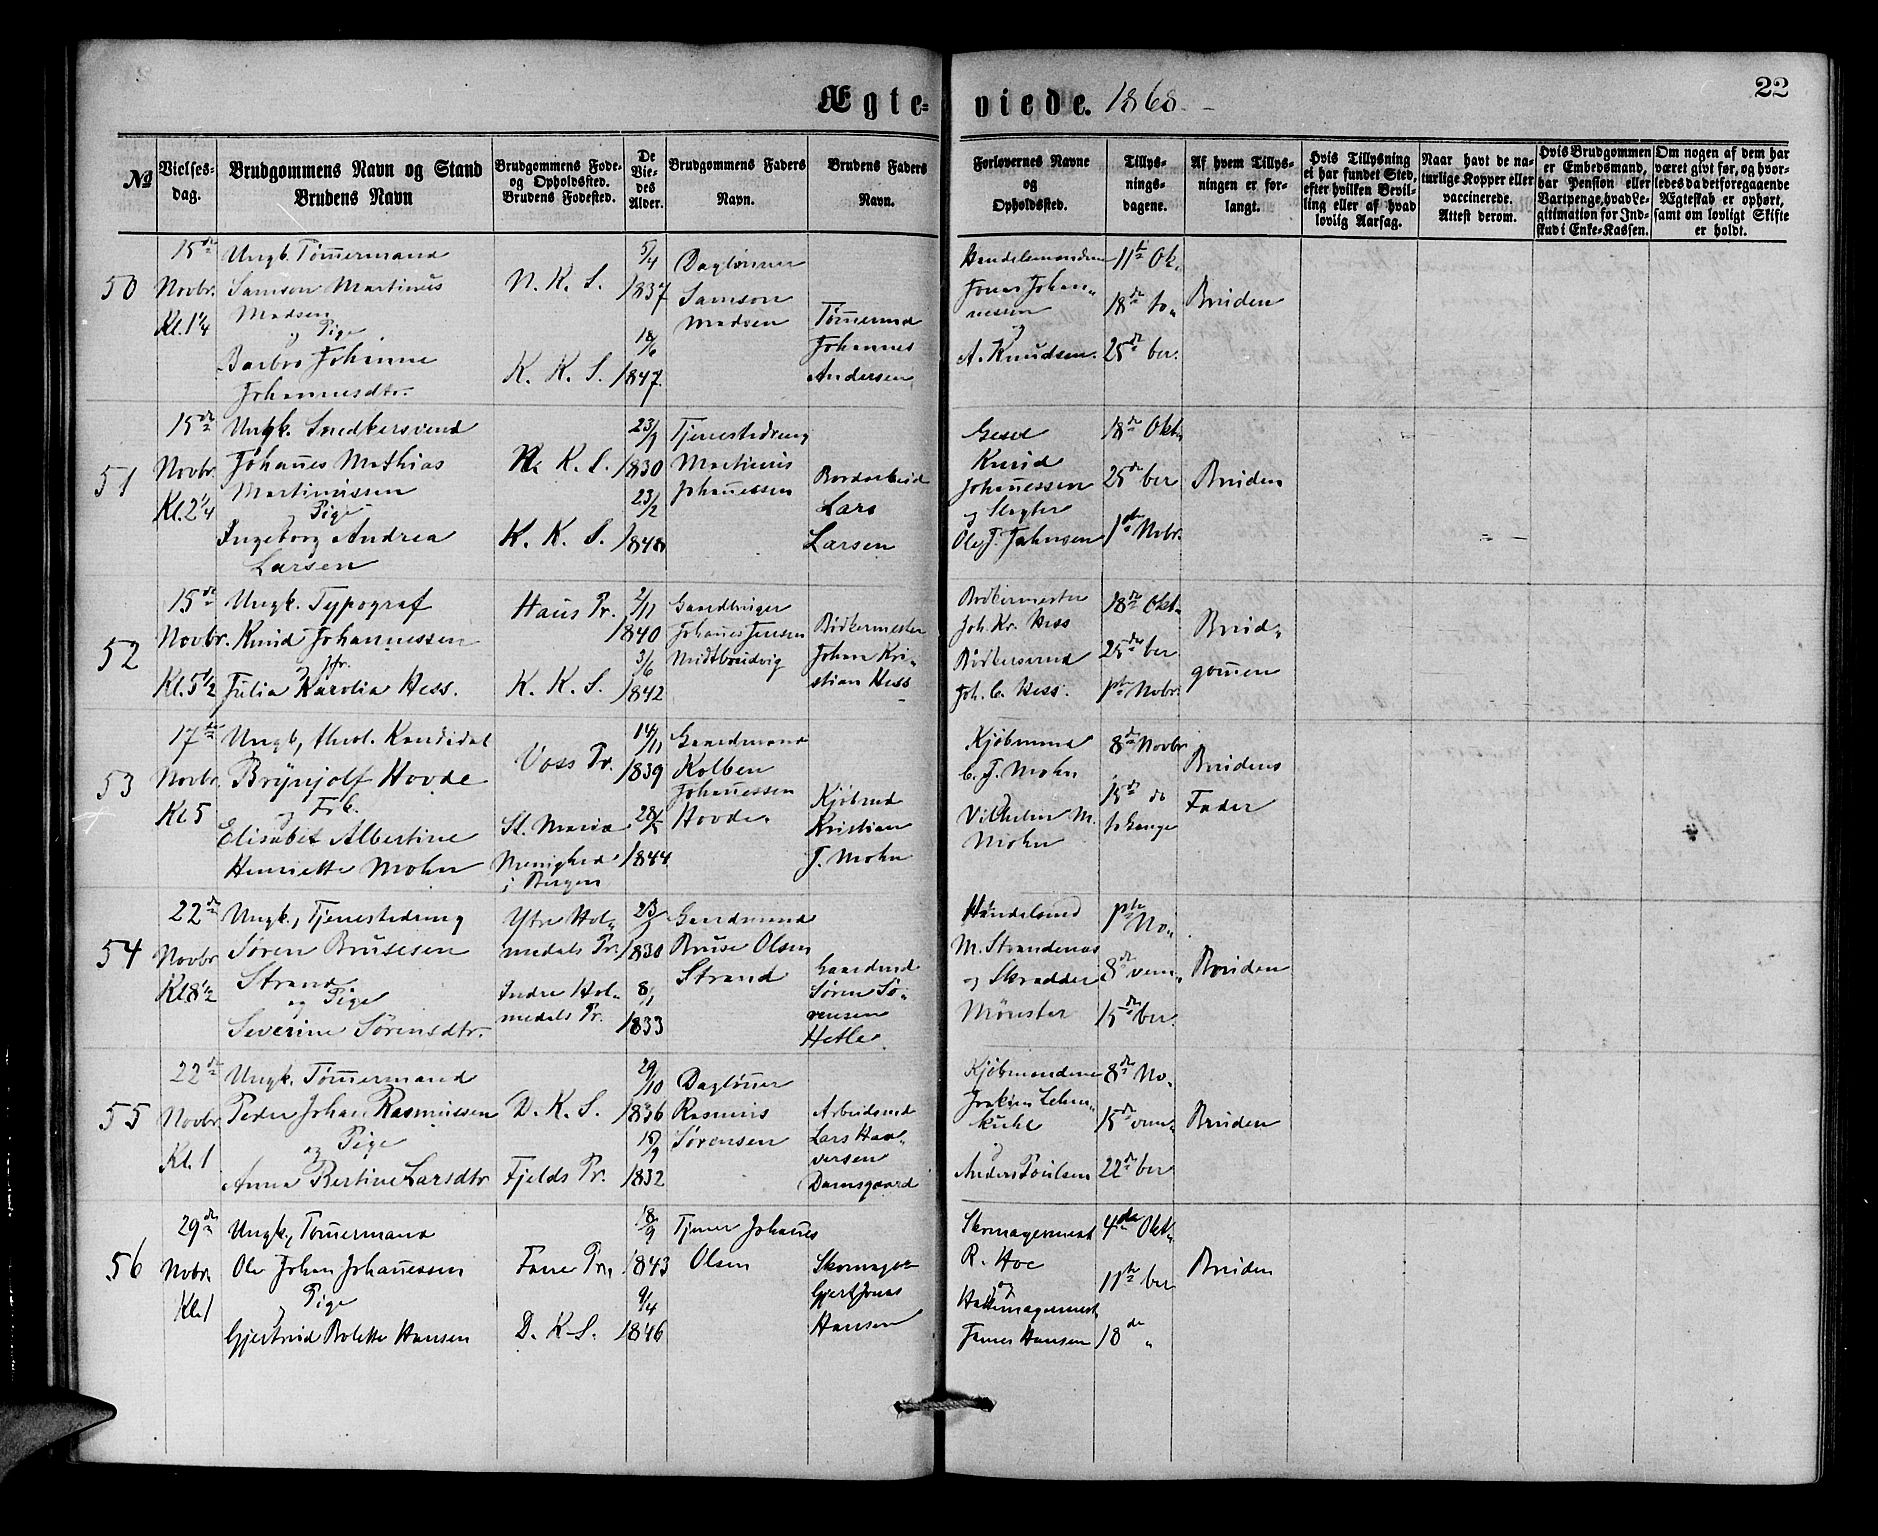 Ægte-
viede. 1868.
22
№
Vielses-
dag.
Brudgommens Navn og Stand
Brudens Navn
Brudgommens Føde-
og Opholdssted.
Brudens Fødested.
De
Vie-
des
Alder.
Brudgommens Faders
Navn.
Brudens Faders
Navn.
Forlovernes Navne
og
Opholdssted.
Tillys-
nings-
dagene.
Af hvem Tillys-
ningen er for-
langt.
Hvis Tillysning
ei har fundet Sted,
efter hvilken Bevil-
ling eller af hvad
lovlig Aarsag.
Naar havt de na-
turlige Kopper eller
vaccinerede.
Attest derom.
Hvis Brudgommen
er Embedsmand,
har Pension eller
Vartpenge, hvad Le-
gitimation for Ind-
skud i Enke-Kassen.
Om nogen af dem har
været givt før, og hvor-
ledes da det foregaaende
Ægteskab er ophørt,
samt om lovligt Skifte
er holdt.
50
15de
Novbr.
Kl. 1 1/4
Ungk. Tømmermand
Samson Martinus
Madsen
og Pige
Barbro Johanne
Johannesdtr.
N. K. S.
K. K. S.
5/4
1837
18/6
1847.
Daglønner
Samson
Madsen
Tømermd
Johannes
Andersen
Handelsmændene
Jonas Johan-
nessen
og
A. Knudsen.
11te Ok-
18de to-
25de ber.
Bruden
51
15de
Novbr.
Kl. 2 1/4
Ungk. Snedkersvend
Johanes Mathias
Martinussen
og Pige
Ingeborg Andrea
Larsen
N. K. S.
K. K. S.
23/9
1830
23/2
Tjenestedreng
Martinus
Johanessen
Bordarbeid
Lars
Larsen
Knud
Johanessen
og Slagter
Ole J. Johnsen
18de Okt-
25de ber
1ste Novbr.
Bruden
52
15de
Novbr.
Kl. 5 1/2
Ungk. Typograf
Knud Johannessen
og Jfr.
Julia Karolia Hess.
Haus Pr.
K. K. S.
2/11
1840
3/6
1842
Gaardbruger
Johanes Jensen
Midtbredvig
Bødkermester
Johan Kri-
stian Hess
Bødkermester
Joh. Kr. Hess
Bødkersvend
Joh. C. Hess.
18de Okt-
25de ber
1ste Novbr.
Brud-
gomen
53
17de
Novbr.
Kl. 5
Ungk., theol. Kandidat
Brynjolf Hovde
og Frk.
Elisabet Albertine
Henriette Mohn
Voss Pr.
St. Mariæ
Menighed
i Bergen
14/11
1839
28/5
1844
Gaardmand
Kolben
Johanessen
Hovde.
Kjøbmd
Kristian
J. Mohn
Kjøbmænd
C. J. Mohn
og
Vilhelm M.
Mohn
8de Novbr
15de do
to Gange
Brudens
Fader
54
22de
Novbr
Kl 8 1/2
Ungk., Tjenestedreng
Søren Brusesen
Strand
og Pige
Severine Sørensdtr.
Ytre Hol-
medals Pr.
Indre Hol-
medals Pr.
1830
8/1
1833
Gaardmand
Bruse Olsen
Strand
Gaardmd
Søren Sø-
rensen
Hetle
Handelsmd
M. Strandenæs
og Skrædder
Mönster
1ste No-
8de vem-
15de ber.
Bruden
55
22de
Novbr.
Kl. 1
Ungk. Tømermand
Peder Johan Rasmussen
og Pige
Anna Bertine Larsdtr
D. K. S.
Fjelds Pr.
29/10
1836
15/9
1832
Dagløner
Rasmus
Sørensen
Arbeidsmd
Lars Haa-
versen
Damsgaard
Kjøbmændene
Joakim Lehm-
kuhl
og
Anders Poulsen
8de No-
15de vem-
22de ber
Bruden
56
29de
Novbr.
Kl. 1
Ungk., Tømermand
Ole Johan Johanessen
og Pige
Gjertrud Bolette Hansen
Fane Pr.
D. K. S.
18/9
1843
9/4
1846
Tjener Johanes
Olsen
Skomager
Gjert Jonas
Hansen
Skomagermest
R. Hoe
og
Hattemagermest
James Hansen
4de Okt-
11te ber
18de "
Bruden